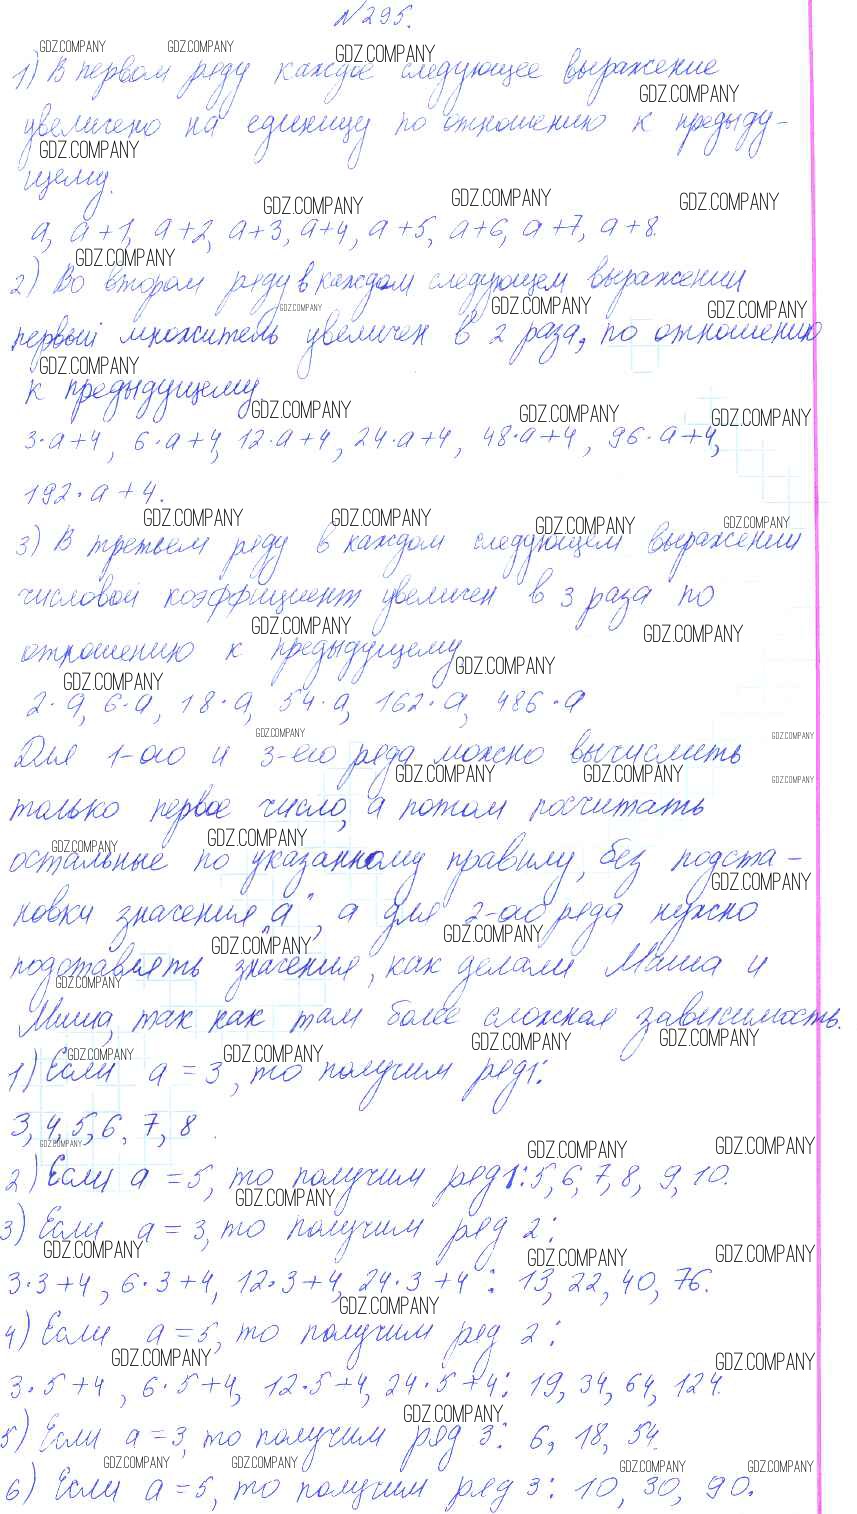 №295.
1) В первом ряду каждое следующее выражение
увеличено на единицу по отношению к предыду-
щему.
a, a+1, a+2, a+3, a+4, a+5, a+6, a+7, a+8.
2) Во втором ряду в каждом следующем выражении
первый множитель увеличен в 2 раза, по отношению
к предыдущему.
3·a+4, 6·a+4, 12·a+4, 24·a+4, 48·a+4, 96·a+4,
192·a+4.
3) В третьем ряду в каждом следующем выражении
числовой коэффициент увеличен в 3 раза по
отношению к предыдущему
2·a, 6·a, 18·a, 54·a, 162·a, 486·a
Для 1-ого и 3-его ряда можно вычислить
только первое число, а потом посчитать
остальные по указанному правилу, без подста-
новки значения „a", а для 2-ого ряда нужно
подставлять значения, как делали Маша и
Миша, так как там более сложная зависимость.
1) Если a = 3, то получим ряд 1:
3, 4, 5, 6, 7, 8.
2) Если a = 5, то получим ряд 1: 5, 6, 7, 8, 9, 10.
3) Если a = 3, то получим ряд 2:
3·3+4, 6·3+4, 12·3+4, 24·3+4: 13, 22, 40, 76.
4) Если a = 5, то получим ряд 2:
3·5+4, 6·5+4, 12·5+4, 24·5+4: 19, 34, 64, 124.
5) Если a = 3, то получим ряд 3: 6, 18, 54.
6) Если a = 5, то получим ряд 3: 10, 30, 90.